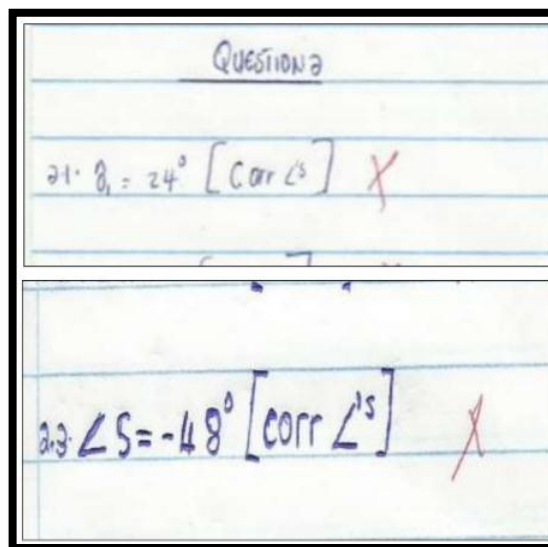 QUESTION 2
2.1. Q̂₁ = 24° [Corr ∠'s]
2.3. ∠S = -48° [corr ∠'s]